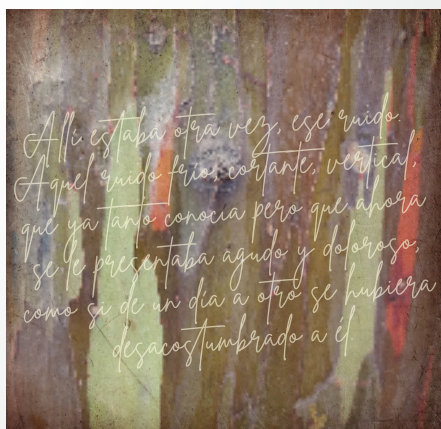 Allí estaba otra vez, ese ruido.
Aquel ruido frío, cortante, vertical,
que ya tanto conocía pero que ahora
se le presentaba agudo y doloroso,
como si de un día a otro se hubiera
desacostumbrado a él.